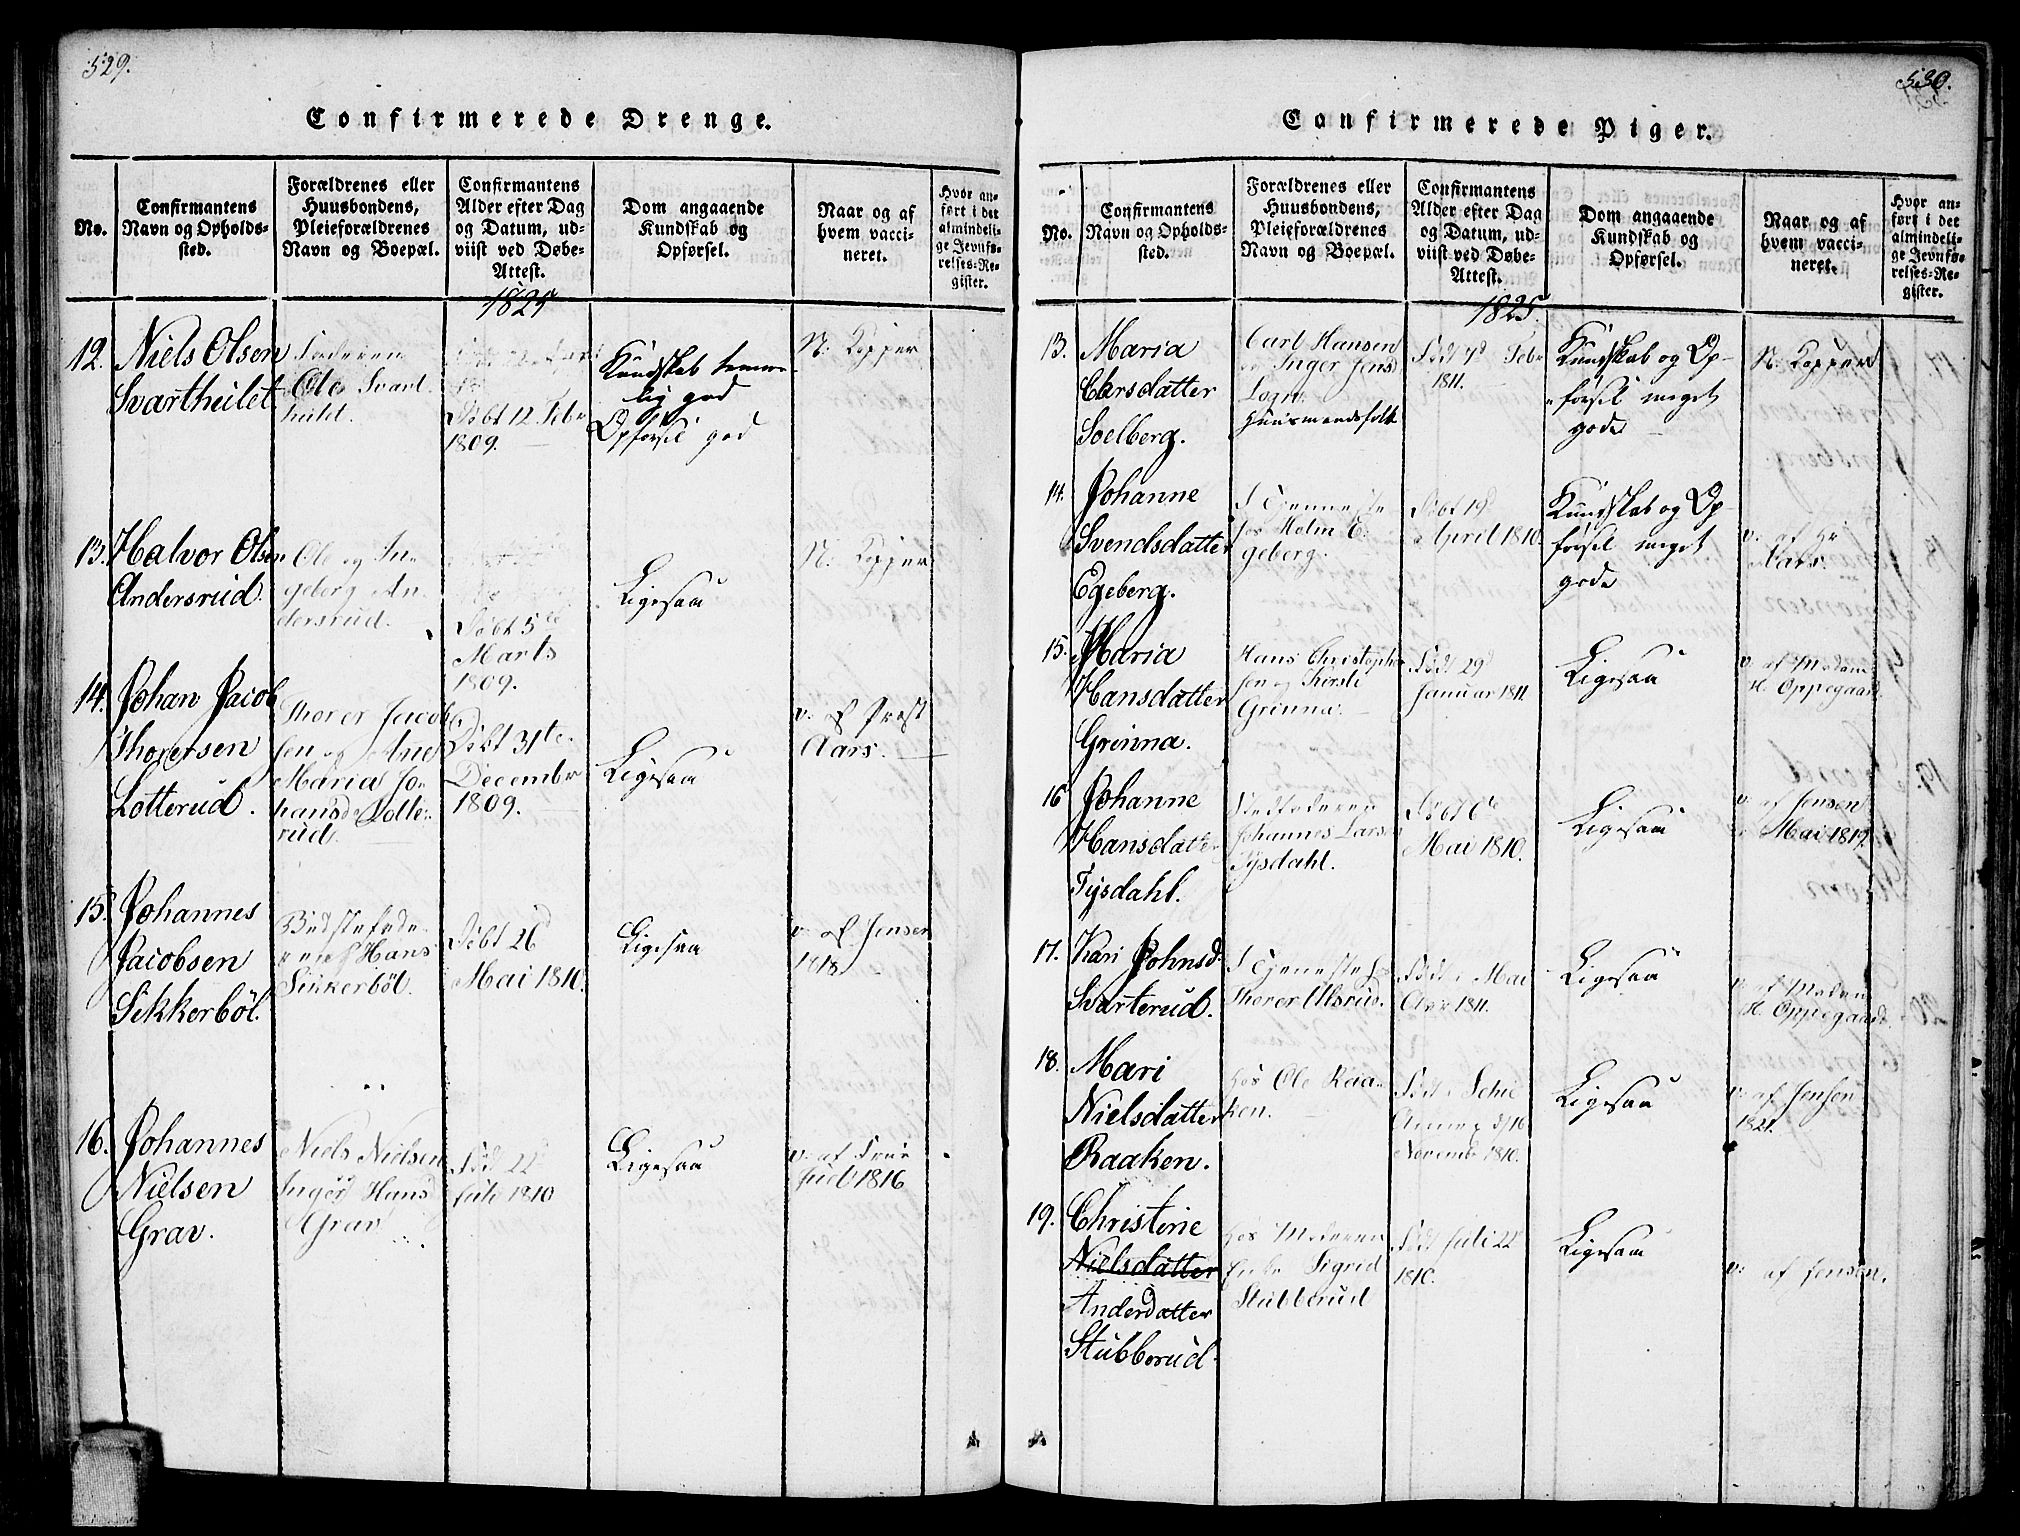 529.
Confirmerede Drenge.
No.
Confirmantens
Navn og Opholds-
sted.
Forældrenes eller
Huusbondens,
Pleieforældrenes
Navn og Boepæl.
Confirmantens
Alder efter Dag
og Datum, ud-
viist ved Døbe-
Attest.
Dom angaaende
Kundskab og
Opførsel.
Naar og af
hvem vacci-
neret.
Hvor an-
ført i det
almindeli-
ge Jevnfø-
relses-Re-
gister.
1825
12.
Niels Olsen
Svarthulet
Faderen
Ole Svart
hulet.
Døbt 12 Febr
1809.
Kundskab temme
lig god
Opførsel god
N. Kopper
13.
Halvor Olsen
Andersrud.
Ole og In-
geberg An-
dersrud.
Døbt 5te
Marts
1809.
Ligesaa
N. Kopper
14.
Johan Jacob
Thorersen
Lotterud.
Thorer Jacob
sen og Ane
Maria Jo-
hansd. Lotte-
rud.
Døbt 31te
December
1809.
Ligesaa
v. af Prost
Aars.
15.
Johannes
Jacobsen
Sikkerböl.
Bedstefade-
ren Hans
Sikkerböl.
Døbt 26
Mai 1810.
Ligesaa
v. af Jensen
1818.
16.
Johannes
Nielsen
Grav.
Niels Nielsen
Inger Hans
Grav
Fød 22
Juli 1810
Ligesaa
v. af Frue
Juel 1816
530.
Confirmerede Piger.
No.
Confirmantens
Navn og Opholds-
sted.
Forældrenes eller
Huusbondens,
Pleieforældrenes
Navn og Boepæl.
Confirmantens
Alder efter Dag
og Datum, ud-
viist ved Døbe-
Attest.
Dom angaaende
Kundskab og
Opførsel.
Naar og af
hvem vacci-
neret.
Hvor an-
ført i det
almindeli-
ge Jevnfø-
relses-Re-
gister.
1825.
13.
Maria
Carsdatter
Soelberg.
Carl Hansen
og Inger Jensd
Huusmandsfolk
Fød 7d Febr
1811.
Kundskab og Op-
førsel meget
gode
N. Kopper
14.
Johanne
Svendsdatter
Egeberg.
I Tjenneste
hos Holm E-
geberg.
Døbt 19d
April 1810.
Kundskab og Op-
førsel meget
gode
v. af Hr
Aars.
15.
Maria
Hansdatter
Grinna.
Hans Christophe
sen og Kirsti
Grinna.
Fød 29d
Januar 1811.
Ligesaa
v. af Madam
H. Oppegaard.
16
Johanne
Hansdatter
Tysdahl.
Stedfaderen
Johannes Larsen
Tysdahl.
Døbt 6te
Mai 1810.
Ligesaa
v. af Jensen
Mai 1819.
17.
Kari Johnsd.
Svarterud.
I Tjeneste hos
Thorer Ulsrud.
Fød i Mai
1811.
Ligesaa
v. af Madam
H. Oppegaard.
18.
Mari
Nielsdatter
Raaken.
hos Ole Raa-
ken.
Fød i Schie
Annex d/16
Novembr 1810.
Ligesaa
v. af Jensen
1821.
19.
Christine
Nielsdatter
Anderdatter
Stubberud.
hos Moderen
Enke Sigrid
Stubberud
Fød Juli 22
1810.
Ligesaa
v: af Jensen.